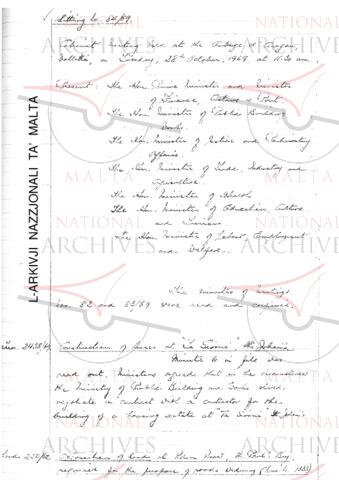 Sitting No. 54/69
Cabinet Meeting held at the Auberge d'Aragon,
Valletta, on Tuesday, 28th October, 1969 at 11.30 am.
Present: The Hon. Prime Minister and Minister
of Finance, Customs & Port.
The Hon. Minister of Public Building &
Works.
The Hon. Minister of Justice and Parliamentary
Affairs.
The Hon. Minister of Trade, Industry and
Agriculture.
The Hon. Minister of Health
The Hon. Minister of Education, Culture
and Tourism
The Hon. Minister of Labour, Employment
and Welfare.
The minutes of meetings
Nos. 52 and 53/69 were read and confirmed.
Construction of houses at "Ta Giorni" St. Julian's
Minute 6 in file was
read out. Ministers agreed that in the circumstances
the Ministry of Public Building and Works should
negotiate a contract with a contractor for the
building of a housing estate at "Ta Giorni" St. Julian's.
Acquisition of lands at St. Paul's Bay
required for the purpose of roads widening
L-ARKIVJI NAZZJONALI TA' MALTA
NATIONAL
ARCHIVES
MALTA